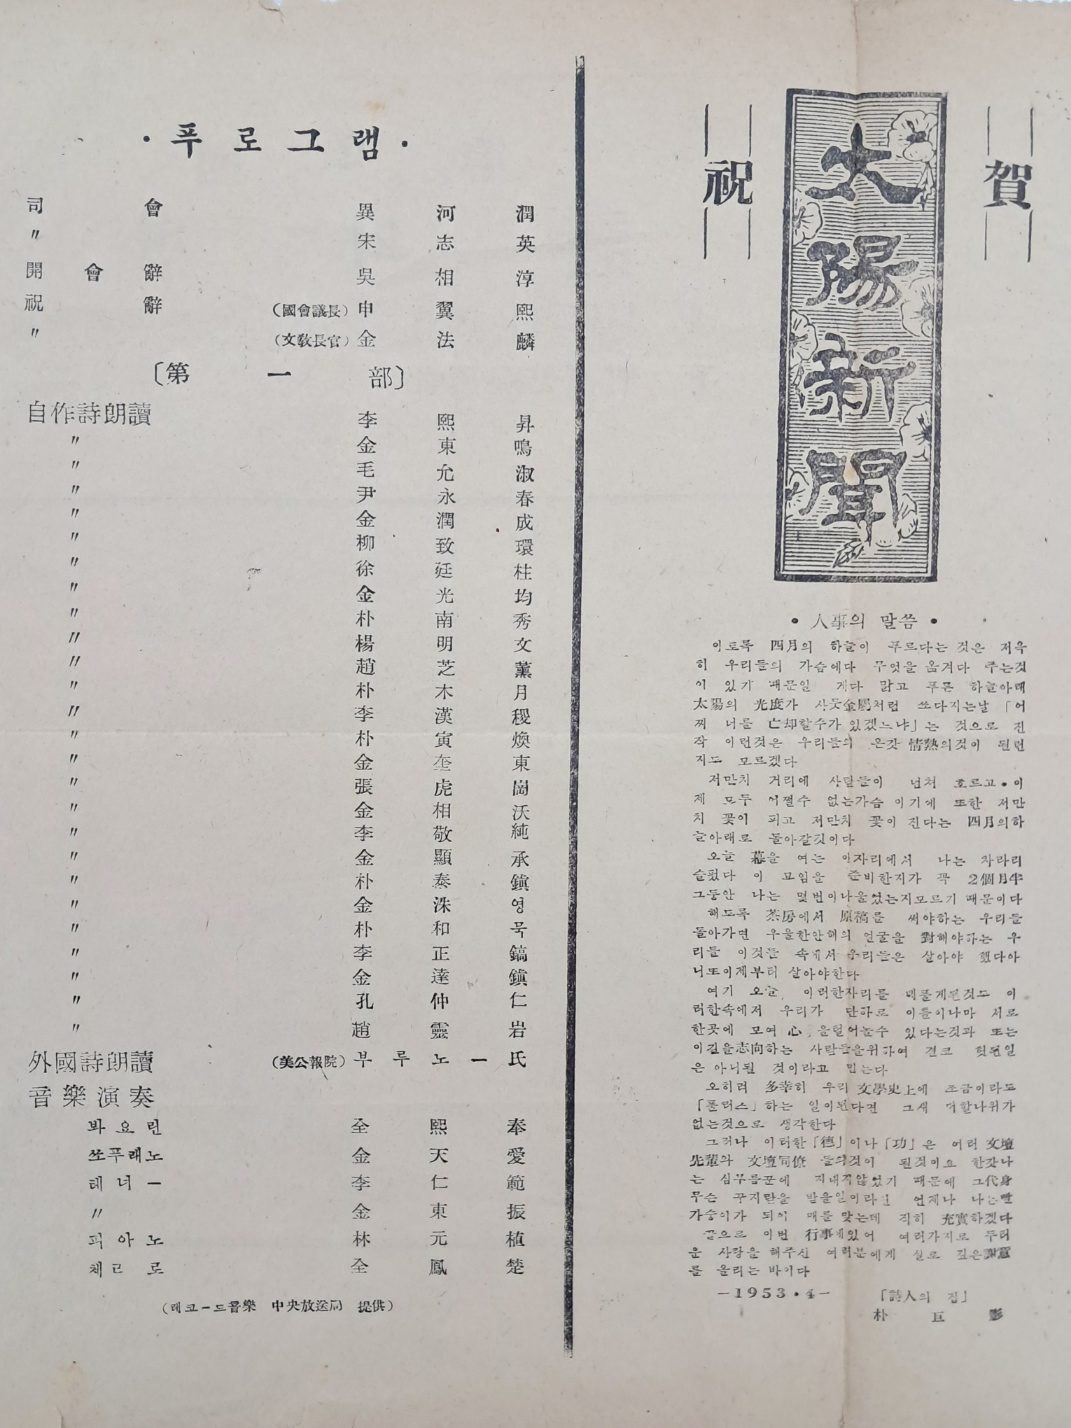 ·푸로그램·
司會 異河潤
〃 宋志英
開會辭 吳相淳
祝辭 (國會議長) 申翼熙
〃 (文敎長官) 金法麟
〔第一部〕
自作詩朗讀 李熙昇
〃 金東鳴
〃 毛允淑
〃 尹永春
〃 金潤成
〃 柳致環
〃 徐廷柱
〃 金光均
〃 朴南秀
〃 楊明文
〃 趙芝薰
〃 朴木月
〃 李漢稷
〃 朴寅煥
〃 金奎東
〃 張虎崗
〃 金相沃
〃 李敬純
〃 金顯承
〃 朴泰鎭
〃 金洙영
〃 朴和목
〃 李正鎬
〃 金達鎭
〃 孔仲仁
〃 趙靈岩
外國詩朗讀 (美公報院) 부루노ー氏
音樂演奏
봐요린 全熙奉
쏘푸래노 金天愛
테너ー 李仁範
〃 金東振
피아노 林元植
체ㄹ로 全鳳楚
(레코ー드音樂 中央放送局 提供)
祝 太陽新聞 賀
•人事의 말씀•
이토록 四月의 하늘이 푸르다는 것은 저윽
히 우리들의 가슴에다 무엇을 옮겨다 주는것
이 있기 때문일 게다 맑고 푸른 하늘아래
太陽의 光度가 사뭇金屬처럼 쏘다지는날 「어
찌 너를 亡却할수가 있겠느냐」는 것으로 진
작 이런것은 우리들의 온갖 情熱의것이 될런
지도 모르겠다
저만치 거리에 사람들이 넘쳐 흐르고•이
제 모두 어쩔수 없는가슴 이기에 또한 저만
치 꽃이 피고 저만치 꽃이 진다는 四月의하
늘아래로 돌아갈것이다
오늘 幕을 여는 이자리에서 나는 차라리
슬펐다 이 모임을 준비한지가 꼭 2個月半
그동안 나는 몇번이나울었는지모르기 때문이다
해도록 茶房에서 原稿를 써야하는 우리들
돌아가면 우울한안해의 얼굴을 對해야하는 우
리들 이것들 속에서 우리들은 살아야 했다아
니또이제부터 살아야한다
여기 오늘 이러한자리를 베풀게된것도 이
러한속에저 우리가 단하로 이틀이나마 서로
한곳에 모여 心 을털어놀수 있다는것과 또는
이길을志向하는 사람들을위하여 결코 헛된일
은 아니될 것이라고 믿는다
오히려 多幸히 우리 文學史上에 조금이라도
「풀러스」하는 일이된다면 그새 더할나위가
없는것으로 생각한다
그러나 이러한「德」이나「功」은 여러 文壇
先輩와 文壇同僚 들의것이 될것이요 한갓나
는 심부름꾼에 지내지않었기 때문에 그代身
무슨 꾸지람을 받을일이라면 언제나 나는빨
가숭이가 되어 매를 맞는데 적히 充實하겠다
끝으로 이번 行事에있어 여러가지로 두터
운 사랑을 해주신 여러분에게 실로 깊은謝意
를 올리는 바이다
ー1953•4ー 「詩人의 집」
朴巨影